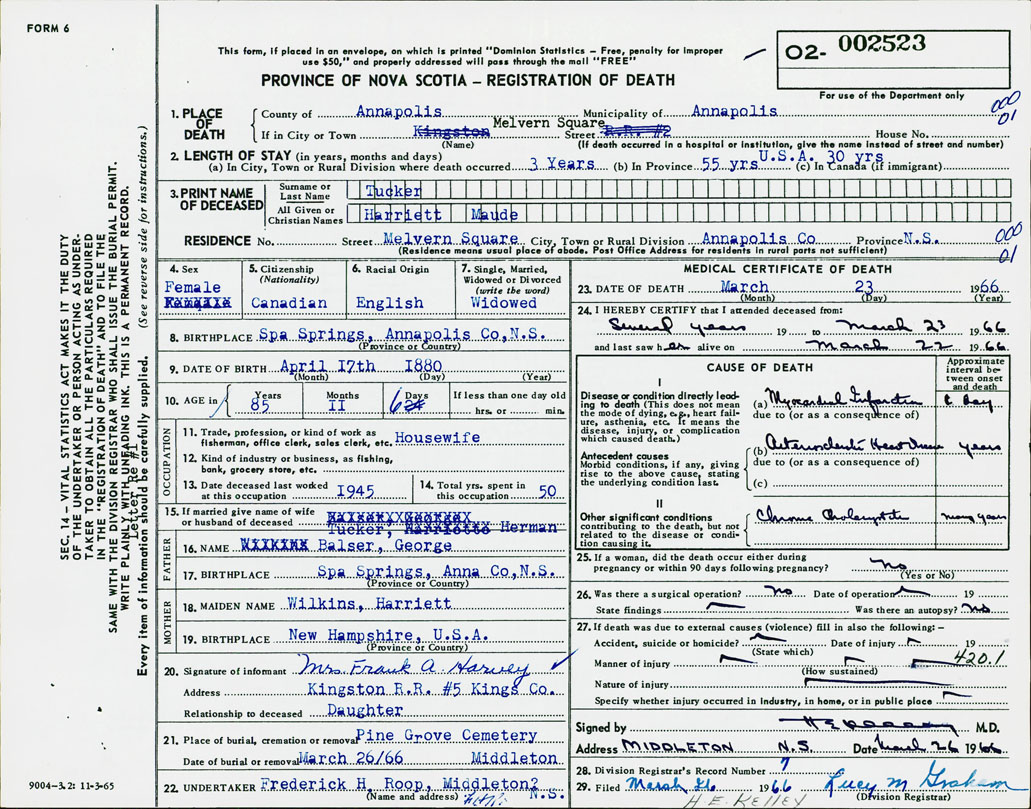 FORM 6
This form, if placed in an envelope, on which is printed "Dominion Statistics – Free, penalty for improper
use $50," and properly addressed will pass through the mail "FREE"
O2- 002523
PROVINCE OF NOVA SCOTIA – REGISTRATION OF DEATH
For use of the Department only
1. PLACE OF DEATH
County of Annapolis Municipality of Annapolis
000
01
Melvern Square
If in City or Town Kingston Street R.R. #2 House No.
(Name) (If death occurred in a hospital or institution, give the name instead of street and number)
2. LENGTH OF STAY (in years, months and days)
U.S.A. 30 yrs
(a) In City, Town or Rural Division where death occurred 3 Years (b) In Province 55 yrs (c) In Canada (if immigrant)
3. PRINT NAME OF DECEASED
Surname or Last Name Tucker
All Given or Christian Names Harriett Maude
RESIDENCE No. Street Melvern Square City, Town or Rural Division Annapolis Co Province N.S.
(Residence means usual place of abode. Post Office Address for residents in rural parts not sufficient)
000
01
4. Sex
Female
5. Citizenship
(Nationality)
Canadian
6. Racial Origin
English
7. Single, Married, Widowed or Divorced
(write the word)
Widowed
8. BIRTHPLACE Spa Springs, Annapolis Co,N.S.
(Province or Country)
9. DATE OF BIRTH April I7th I880
(Month) (Day) (Year)
10. AGE in
Years 85
Months II
Days 6
If less than one day old
hrs. or min.
OCCUPATION
11. Trade, profession, or kind of work as
fisherman, office clerk, sales clerk, etc. Housewife
12. Kind of industry or business, as fishing,
bank, grocery store, etc.
13. Date deceased last worked
at this occupation I945
14. Total yrs. spent in
this occupation 50
15. If married give name of wife
or husband of deceased Tucker, Herman
FATHER
16. NAME Balser, George
17. BIRTHPLACE Spa Springs, Anna Co,N.S.
(Province or Country)
MOTHER
18. MAIDEN NAME Wilkins, Harriett
19. BIRTHPLACE New Hampshire, U.S.A.
(Province or Country)
20. Signature of informant Mrs. Frank A. Harvey
Address Kingston R.R. #5 Kings Co.
Relationship to deceased Daughter
21. Place of burial, cremation or removal Pine Grove Cemetery
Date of burial or removal March 26/66 Middleton
22. UNDERTAKER Frederick H. Roop, Middleton?
(Name and address) N.S.
MEDICAL CERTIFICATE OF DEATH
23. DATE OF DEATH March 23 1966
(Month) (Day) (Year)
24. I HEREBY CERTIFY that I attended deceased from:
Several years 19 to March 23 1966
and last saw her alive on March 22 1966
CAUSE OF DEATH
Approximate interval between onset and death
I
Disease or condition directly leading to death (This does not mean the mode of dying, e.g., heart failure, asthenia, etc. It means the disease, injury, or complication which caused death.)
(a) Myocardial Infarction Day
due to (or as a consequence of)
Antecedent causes
Morbid conditions, if any, giving rise to the above cause, stating the underlying condition last.
(b) Heart years
due to (or as a consequence of)
(c)
II
Other significant conditions
contributing to the death, but not related to the disease or condition causing it.
Chronic Cholecystitis many years
25. If a woman, did the death occur either during
pregnancy or within 90 days following pregnancy? no
(Yes or No)
26. Was there a surgical operation? no Date of operation 19
State findings Was there an autopsy? no
27. If death was due to external causes (violence) fill in also the following:–
Accident, suicide or homicide? Date of injury 19
(State which)
420.1
Manner of injury
(How sustained)
Nature of injury
Specify whether injury occurred in industry, in home, or in public place
Signed by M.D.
Address MIDDLETON N.S. Date March 26 1966
28. Division Registrar's Record Number 7
29. Filed March 26 1966 Lucy M Graham
(Division Registrar)
H E KELLEY
SEC. 14 – VITAL STATISTICS ACT MAKES IT THE DUTY
OF THE UNDERTAKER OR PERSON ACTING AS UNDER-
TAKER TO OBTAIN ALL THE PARTICULARS REQUIRED
IN THE "REGISTRATION OF DEATH" AND TO FILE THE
SAME WITH THE DIVISION REGISTRAR WHO SHALL ISSUE THE BURIAL PERMIT.
WRITE PLAINLY WITH UNFADING INK. THIS IS A PERMANENT RECORD.
Letter Re #1
Every item of information should be carefully supplied. (See reverse side for instructions.)
9004–3.2: 11-3-65